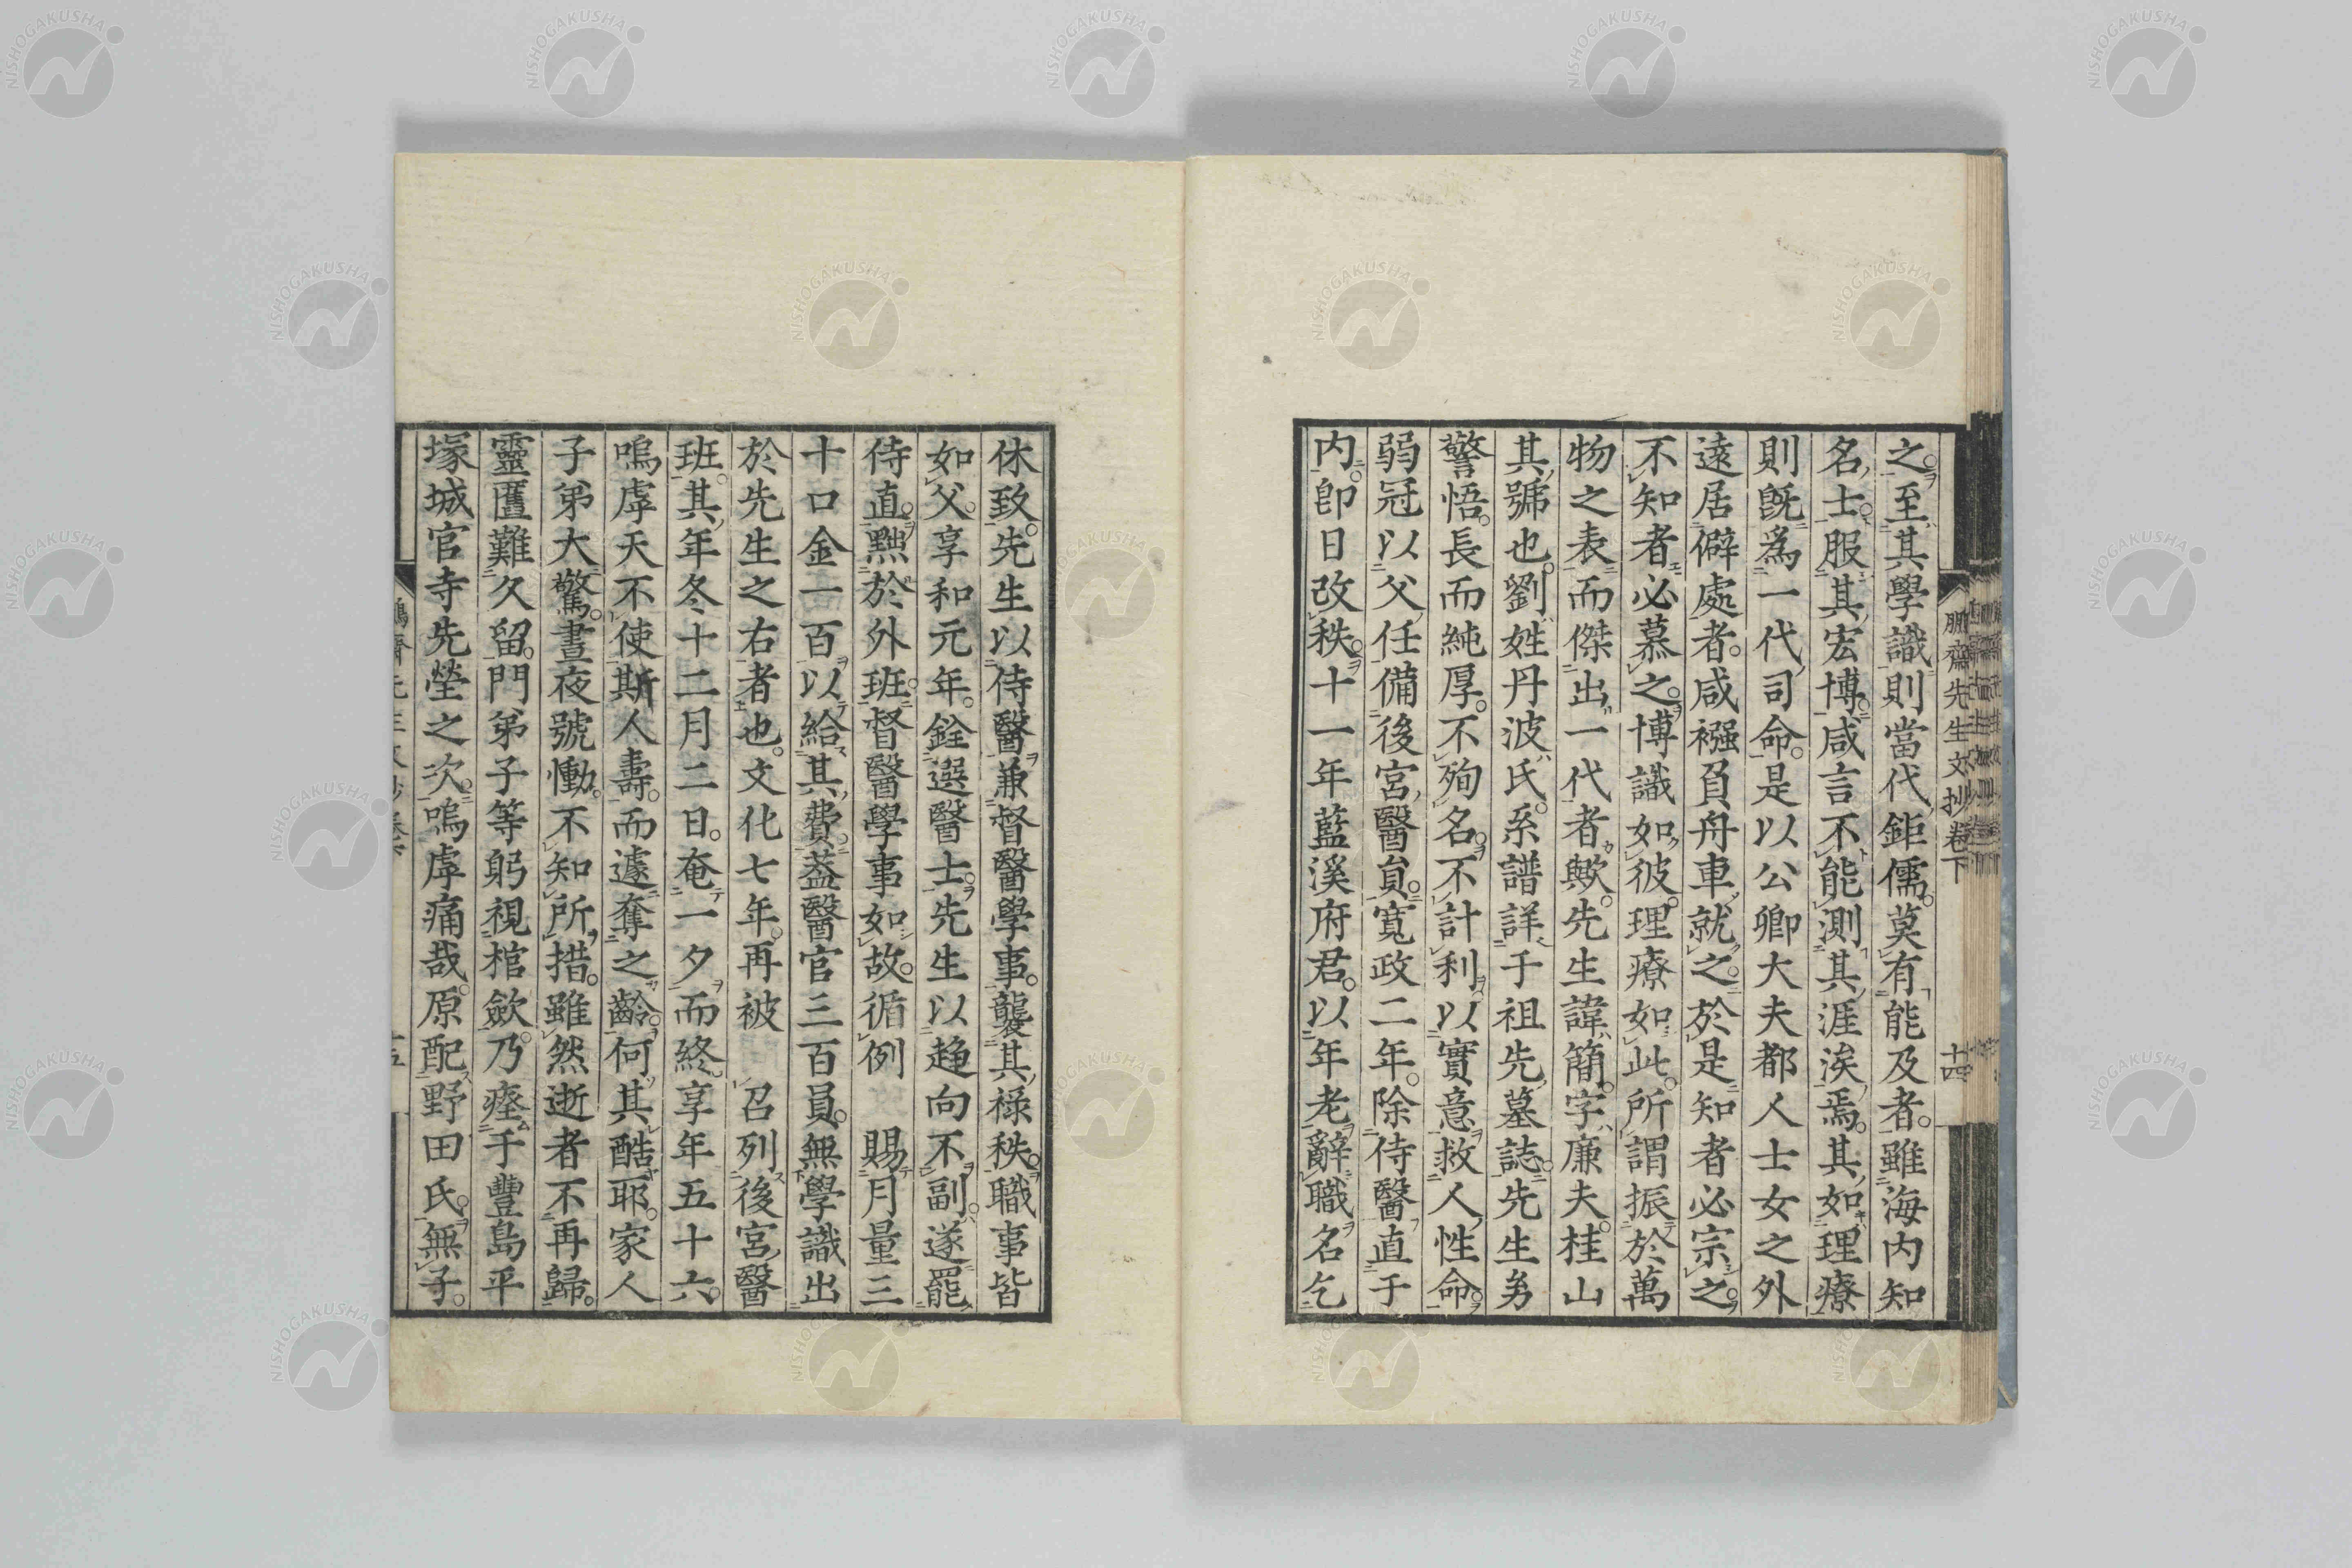 鵬齋先生文抄卷下
十四
之至其學識則當代鉅儒莫有能及者雖海内知
名士服其宏博咸言不能測其涯涘焉其如理療
則旣爲一代司命是以公卿大夫都人士女之外
遠居僻處者咸襁負舟車就之於是知者必宗之
不知者必慕之博識如彼理療如此所謂振於萬
物之表而傑出一代者歟先生諱簡字廉夫桂山
其號也劉姓丹波氏系譜詳于祖先墓誌先生㓜
警悟長而純厚不殉名不計利以實意救人性命
弱冠以父任備後宮醫員寬政二年除侍醫直于
内卽日改秩十一年藍溪府君以年老辭職名乞
休致先生以侍醫兼督醫學事襲其祿秩職事皆
如父享和元年銓選醫士先生以趋向不副遂罷
侍直黜於外班督醫學事如故循例 賜月量三
十口金一百以給其費葢醫官三百員無學識出
於先生之右者也文化七年再被 召列後宮醫
班其年冬十二月二日奄一夕而終享年五十六
嗚虖天不使斯人壽而遽奪之齡何其酷耶家人
子弟大驚晝夜號慟不知所措雖然逝者不再歸
靈匶難久留門弟子等躬視棺歛乃瘞于豐島平
塚城官寺先塋之次嗚虖痛哉原配野田氏無子